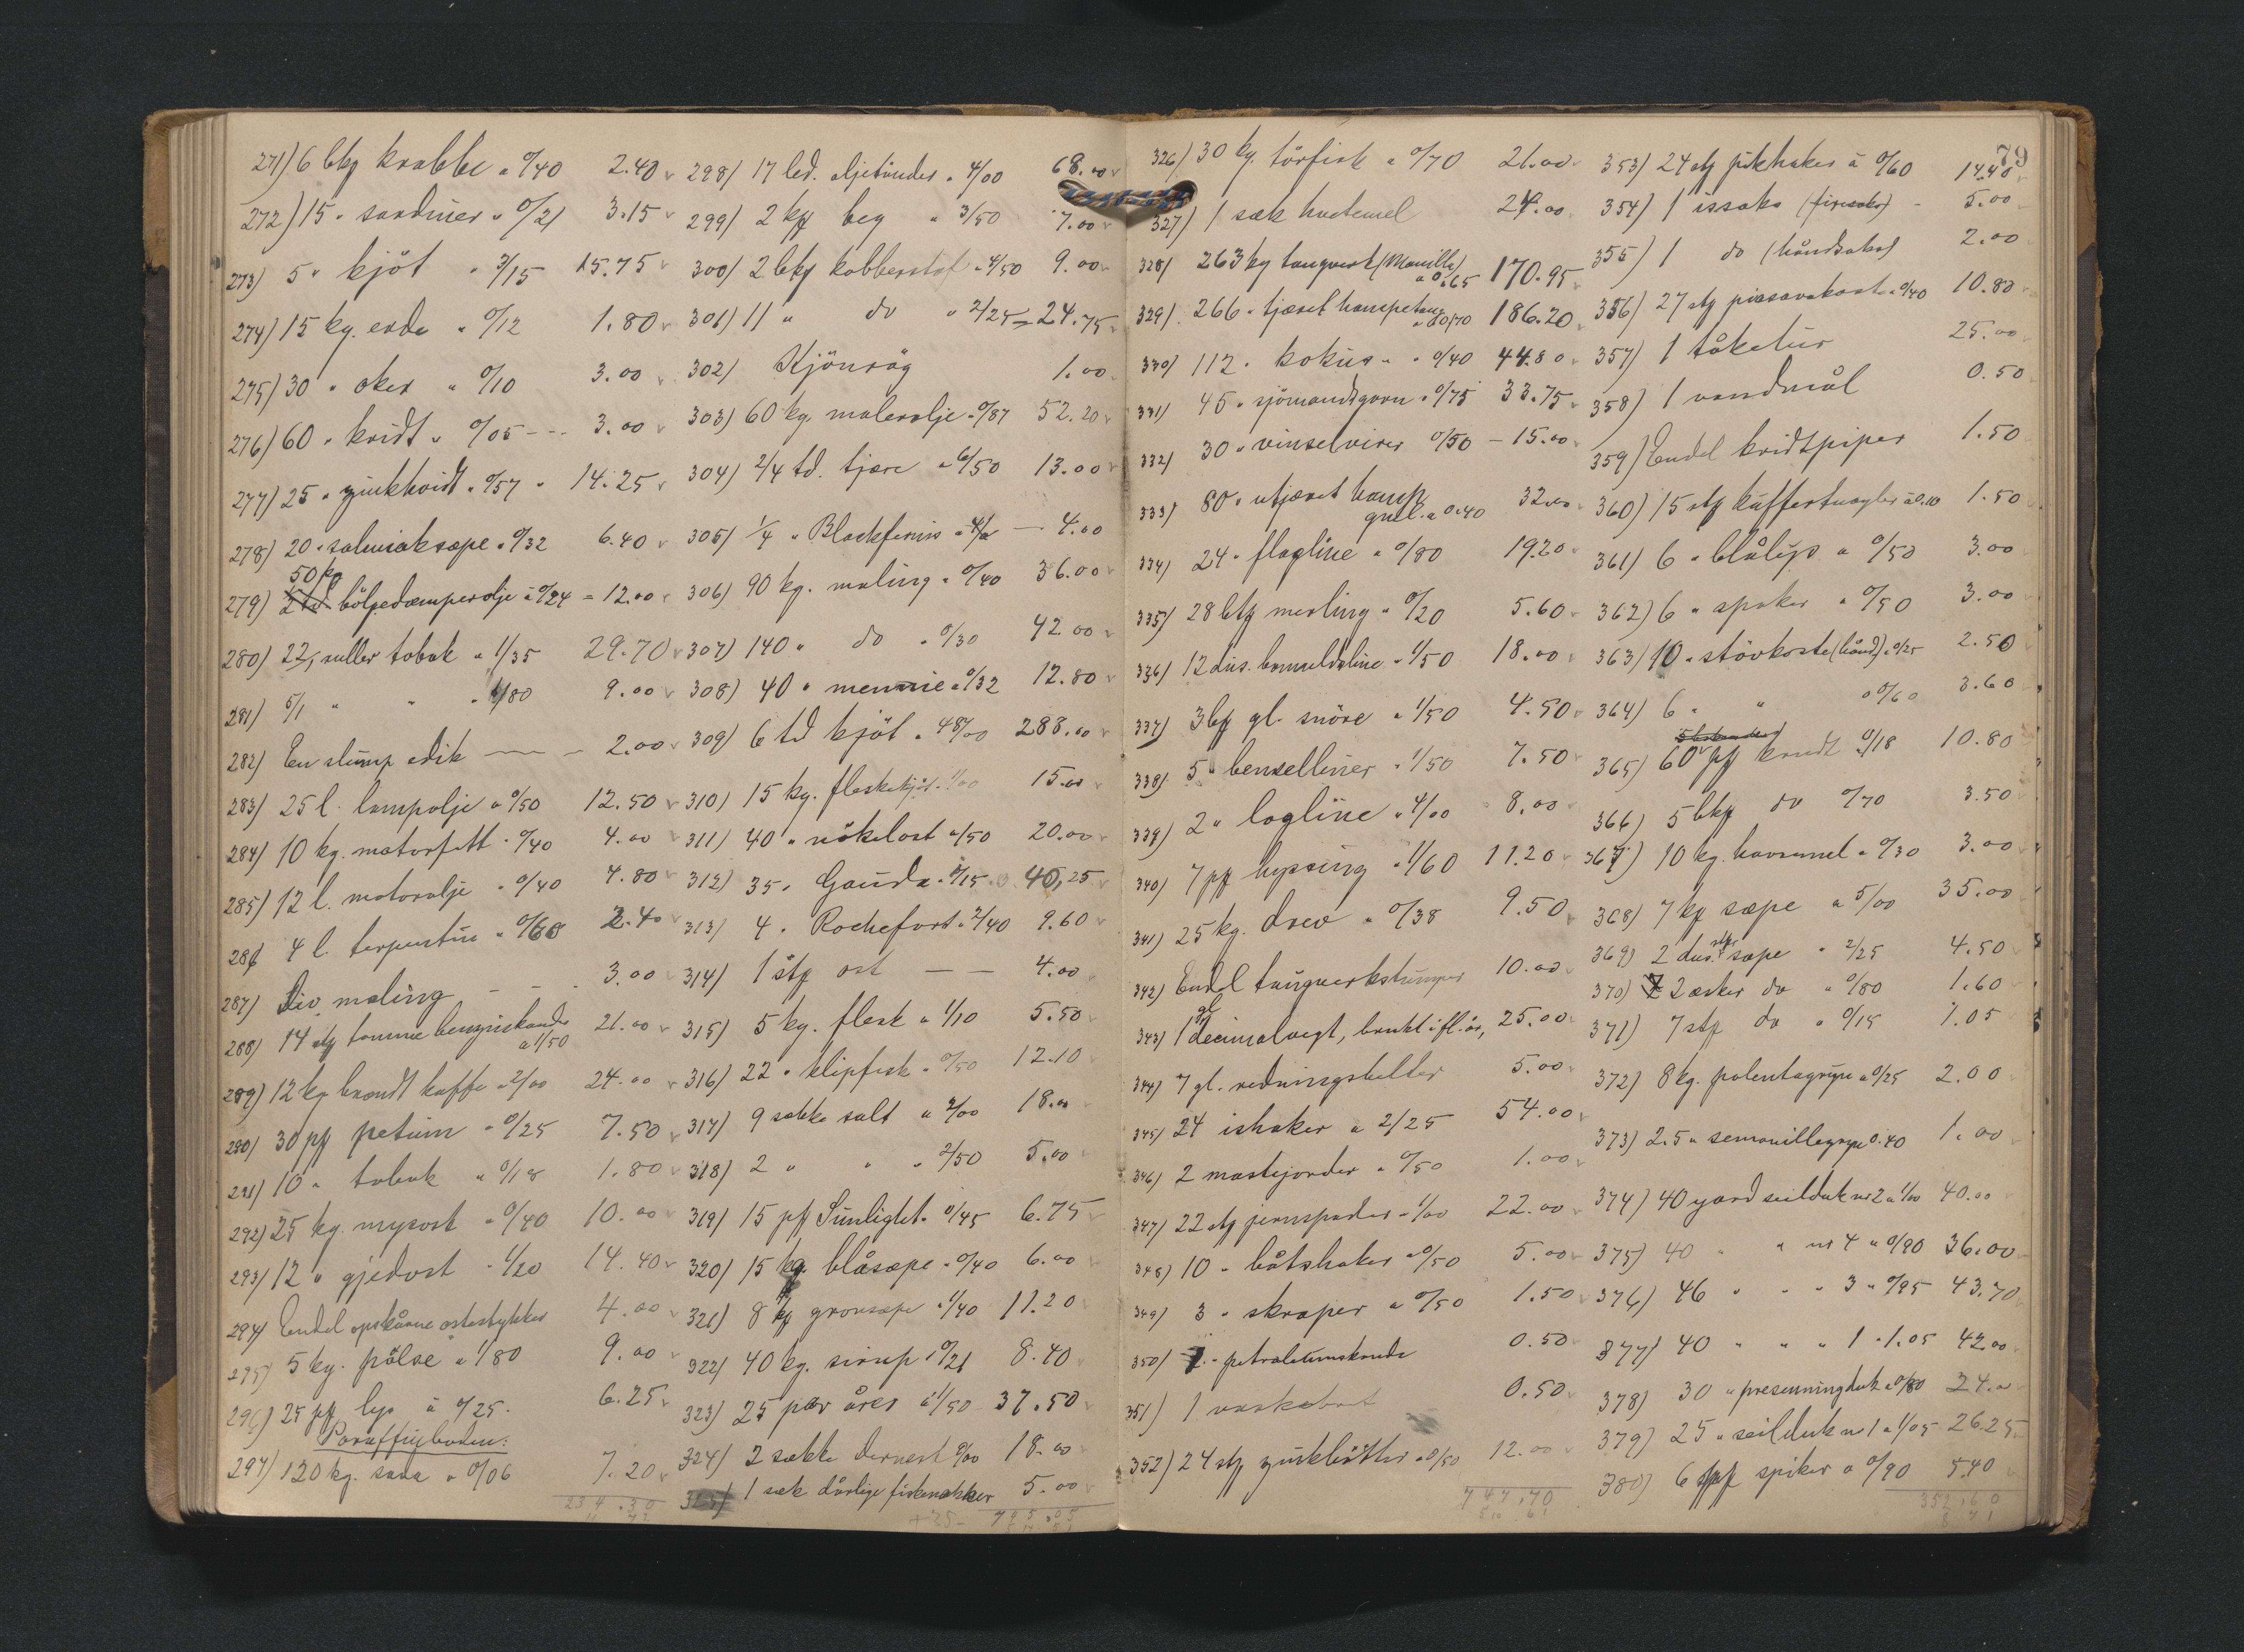 271) 6 bkg krabbe a 0/40 2.40
272) 15 " sardiner " 0/21 3.15
273) 5 " kjöt " 3/15 15.75
274) 15 kg. erda " 0/12 1.80
275) 30 " oker " 0/10 3.00
276) 60 " kridt " 0/05 -- 3.00
277) 25 " zinkhvidt " 0/57 " 14.25
278) 20 " salmiaksæpe " 0/32 6.40
50 kg
279) bölgedæmperolje a 0/24 = 12.00
280) 22/1 ruller tobak " 1/35 29.70
281) 5/1 " " " 1/80 9.00
282) En slump edik — - 2.00
283) 25 l. lampolje a 0/50 12.50
284) 10 kg. motorfett " 0/40 4.00
285) 12 l. motorolje " 0/40 4.80
286) 4 l. terpentin " 0/60 2.40
287) Div. maling - - 3.00
288) 14 stg tomme benzinkander a 1/50 21.00
289) 12 kg brændt kaffe a 2/00 24.00
290) 30 pg petum " 0/25 7.50
291) 10 " tobak " 0/18 1.80
292) 25 kg. mysost " 0/40 10.00
293) 12 " gjedost " 1/20 14.40
294) Endel opskårne ostestykker 4.00
295) 5 kg. pölse " 1/80 9.00
296) 25 pg lys a 0/25. 6.25
Paraffinboden:
297) 120 kg. soda " 0/06 7.20
234.30
298) 17 led. oljetönder " 4/00 68.00
299) 2 kg beg " 3/50 7.00
300) 2 bkg kobberstof " 4/50 9.00
301) 11 " do " 2/25 = 24.75
302) Kjönrög 1.00
303) 60 kg. malerolje " 0/87 52.20
304) 2/4 td. tjære " 6/50 13.00
305) 1/4 " Blackfernis " 4/00 — 4.00
306) 90 kg. maling " 0/40 36.00
307) 140 " do " 0/30 42.00
308) 40 " mennie " 0/32 12.80
309) 6 td kjöt " 48/00 288.00
310) 15 kg. fleskekjöt " 1/00 15.00
311) 40 " nökelost " 0/50 20.00
312) 35 " Gauda " 1/15 40,25
313) 4 " Rochefort " 2/40 9.60
314) 1 stg ost — — 4.00
315) 5 kg. flesk " 1/10 5.50
316) 22 " klipfisk " 0/50 12.10
317) 9 sække salt " 2/00 18.00
318) 2 " " " 2/50 5.00
319) 15 pg Sunlight " 0/45 6.75
320) 15 kg. blåsæpe " 0/40 6.00
321) 8 kg grönsæpe " 1/40 11.20
322) 40 kg. sirup " 0/21 8.40
323) 25 par årer a 1/50 37.50
324) 2 sække dørnest 9/00 18.00
325) 1 sæk dårlige fiskesnakker 5.00
+ 25 -
79
326) 30 kg. törfisk " 0/70 21.00
327) 1 sæk hvetemel 24.00
328) 263 kg taugverk (Manilla) a 0.65 170.95
329) 266 " tjæret hampetaug " 0/70 186.20
330) 112 " kokus " " 0/40 44.80
331) 45 " sjömandsgarn " 0/75 33.75
332) 30 " vinselvirer 0/50 - 15.00
333) 80 " utjæret hamp gml. a 0.40 32.00
334) 24 " flagline " 0/80 19.20
335) 28 btg merling " 0/20 5.60
336) 12 dus. bomuldsline " 1/50 18.00
337) 3 bg gl. snöre " 1/50 4.50
338) 5 " benselliner " 1/50 7.50
339) 2 " logline " 4/00 8.00
340) 7 pg hysing " 1/60 11.20
341) 25 kg. drev " 0/38 9.50
342) Endel taugverkstumper 10.00
343) 1 gl decimalvegt, brukt i fl. år, 25.00
344) 7 gl. redningsbelter 5.00
345) 24 ishaker a 2/25 54.00
346) 2 mastejorder " 0/50 1.00
347) 22 stg jernspader " 1/00 22.00
348) 10 " båtshaker " 0/50 5.00
349) 3 " skraper " 0/50 1.50
350) 1 " petroleumskande 0.50
351) 1 vaskebret 0.50
352) 24 stg zinkbötter " 0/50 12.00
747.70
353) 24 stg pikhaker a 0/60 14.40
354) 1 issaks (firesaks) - 5.00
355) 1 do (håndsaks) 2.00
356) 27 stg piassavakoste " 0/40 10.80
357) 1 tåkelur 25.00
358) 1 vandmål 0.50
359) Endel kridtpiper 1.50
360) 15 stg kuffertnagler a 0.10 1.50
361) 6 " blålys " 0/50 3.00
362) 6 " spaker " 0/50 3.00
363) 10 " stövkoste (hånd) " 0/25 2.50
364) 6 " " " 0/60 3.60
365) 60 pg krudt 0/18 10.80
366) 5 bkg do 0/70 3.50
367) 10 kg. havremel " 0/30 3.00
368) 7 kg sæpe " 5/00 35.00
369) 2 dus. stpr sæpe " 2/25 4.50
370) 2 æsker do " 0/80 1.60
371) 7 stg do " 0/15 1.05
372) 8 kg. polentagryn a 0/25 2.00
373) 2.5 " semouillegryn 0.40 1.00
374) 40 yard seilduk nr 2 a 1/00 40.00
375) 40 " " nr 4 " 0/90 36.00
376) 46 " " " 3 " 0/95 43.70
377) 40 " " " 1 " 1.05 42.00
378) 30 " presenningduk a 0/80 24.00
379) 25 " seilduk nr 1 a 1/05 26.25
380) 6 pg spiker a 0/90 5.40
352,60